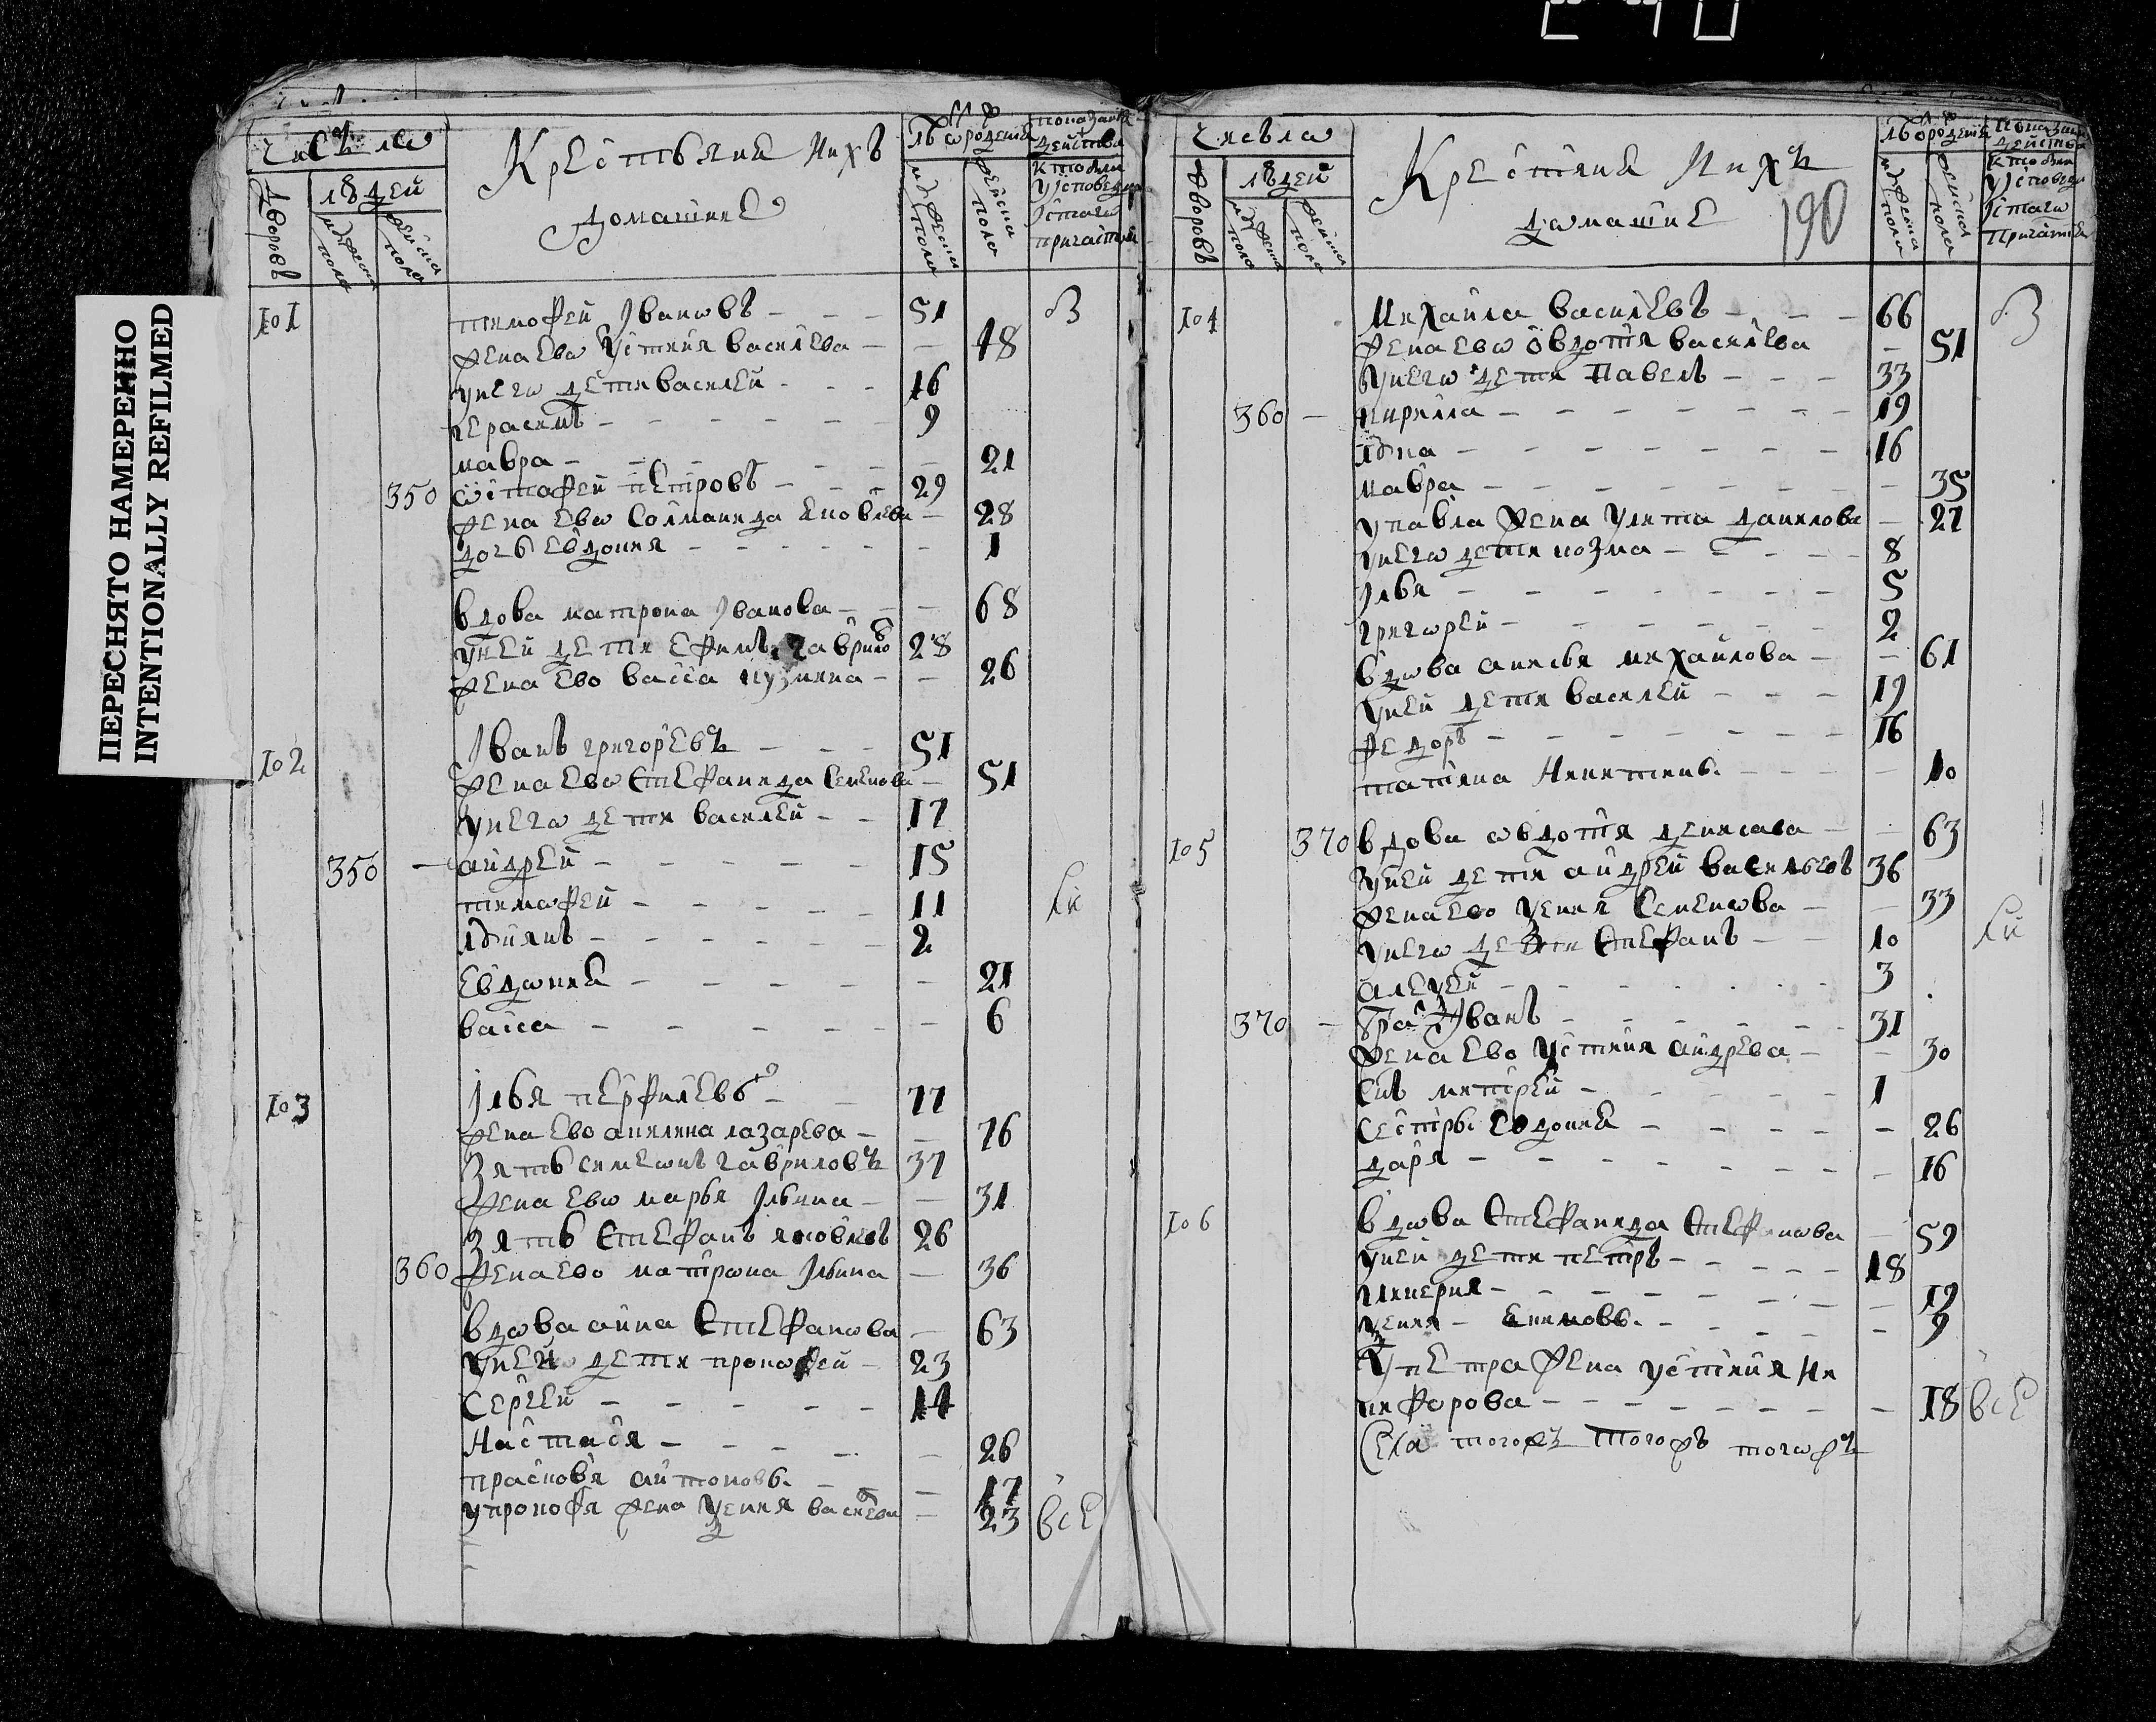 ПЕРЕСНЯТО НАМЕРЕННО
INTENTIONALLY REFILMED
числа
дворовъ
людей
мужеска пола
женска пола
Крестьяне ихъ
домашние
мужеска пола
женска пола
101 тимофей Ивановъ 51 В
жена ево Устинья василева 48
у него дети василей 16
герасимъ 9
мавра 21
350 остафей петровъ 29
жена ево соломанида яковлева 28
дочь евдокия 1
вдова матрона Иванова 68
у ней дети ефимъ гаврило 28
жена ево васса кузмина 26
102 Иванъ григоревъ 51
жена ево стефанида семенова 51
у него дети василей 17
350 андрей 15
тимофей 11
2
евдокия 21
васса 6
103 Илья перфилевъ 77
жена ево акилина лазарева 76
зять симеонъ гавриловъ 37
жена ево марья Ильина 31
зять стефанъ яковлевъ 26
360 жена ево матрона Ильина 36
вдова анна стефанова 63
у ней дети прокофей 23
сергей 14
Настася 26
прасковя антоновъ. 17
у прокофя жена ксения василева 23 все
числа
дворовъ
людей
мужеска пола
женска пола
Крестяне ихъ
домашние
190
мужеска пола
женска пола
104 Михаила василевъ 66 В
жена ево овдотя василева 51
у него дети Павелъ 33
360 кирила 19
16
мавра 35
у павла жена улита данилова 27
у него дети козма 8
Илья 5
григорей 2
вдова анисья михаилова 61
у ней дети василей 19
федоръ 16
татяна Никитинъ. 10
105 370 вдова овдотя денисава 63
у ней дети андрей васильевъ 36
жена ево ксения семенова 33
у него дети стефанъ 10
алексей 3
370 братъ Иванъ 31
жена ево устиня андрева 30
снъ митрей 1
сестры евдокия 26
даря 16
106 вдова стефанида стефанова 59
у ней дети петръ 18
гликерия 19
ксения 9
у петра жена устиния Ни
кифорова 18 все
села тогожъ тогожъ тогожъ